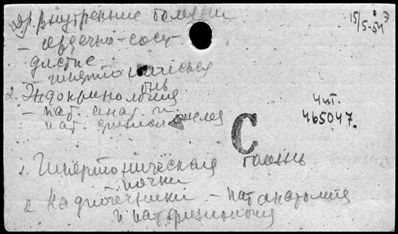 др. внутренние болезни
15/5-51
- сердечно-сосу-
дистые
- гипертоническая
бль
2. Эндокринология
- пат. анат. и
пат. физиология
Чит.
465047.
С
1. Гипертоническая
болезнь
почки
2. Надпочечники - пат анатомия
и пат физиология